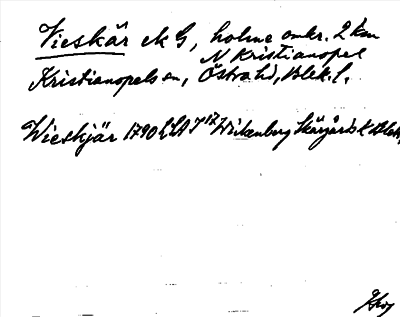 Vieskär ek G, holme omkr. 2 km
N Kristianopel
Kristianopels sn, Östra hd, Blek. l.
Wieskjär 1790 LSA I 17 Wikenberg Skärgårds k Blek.